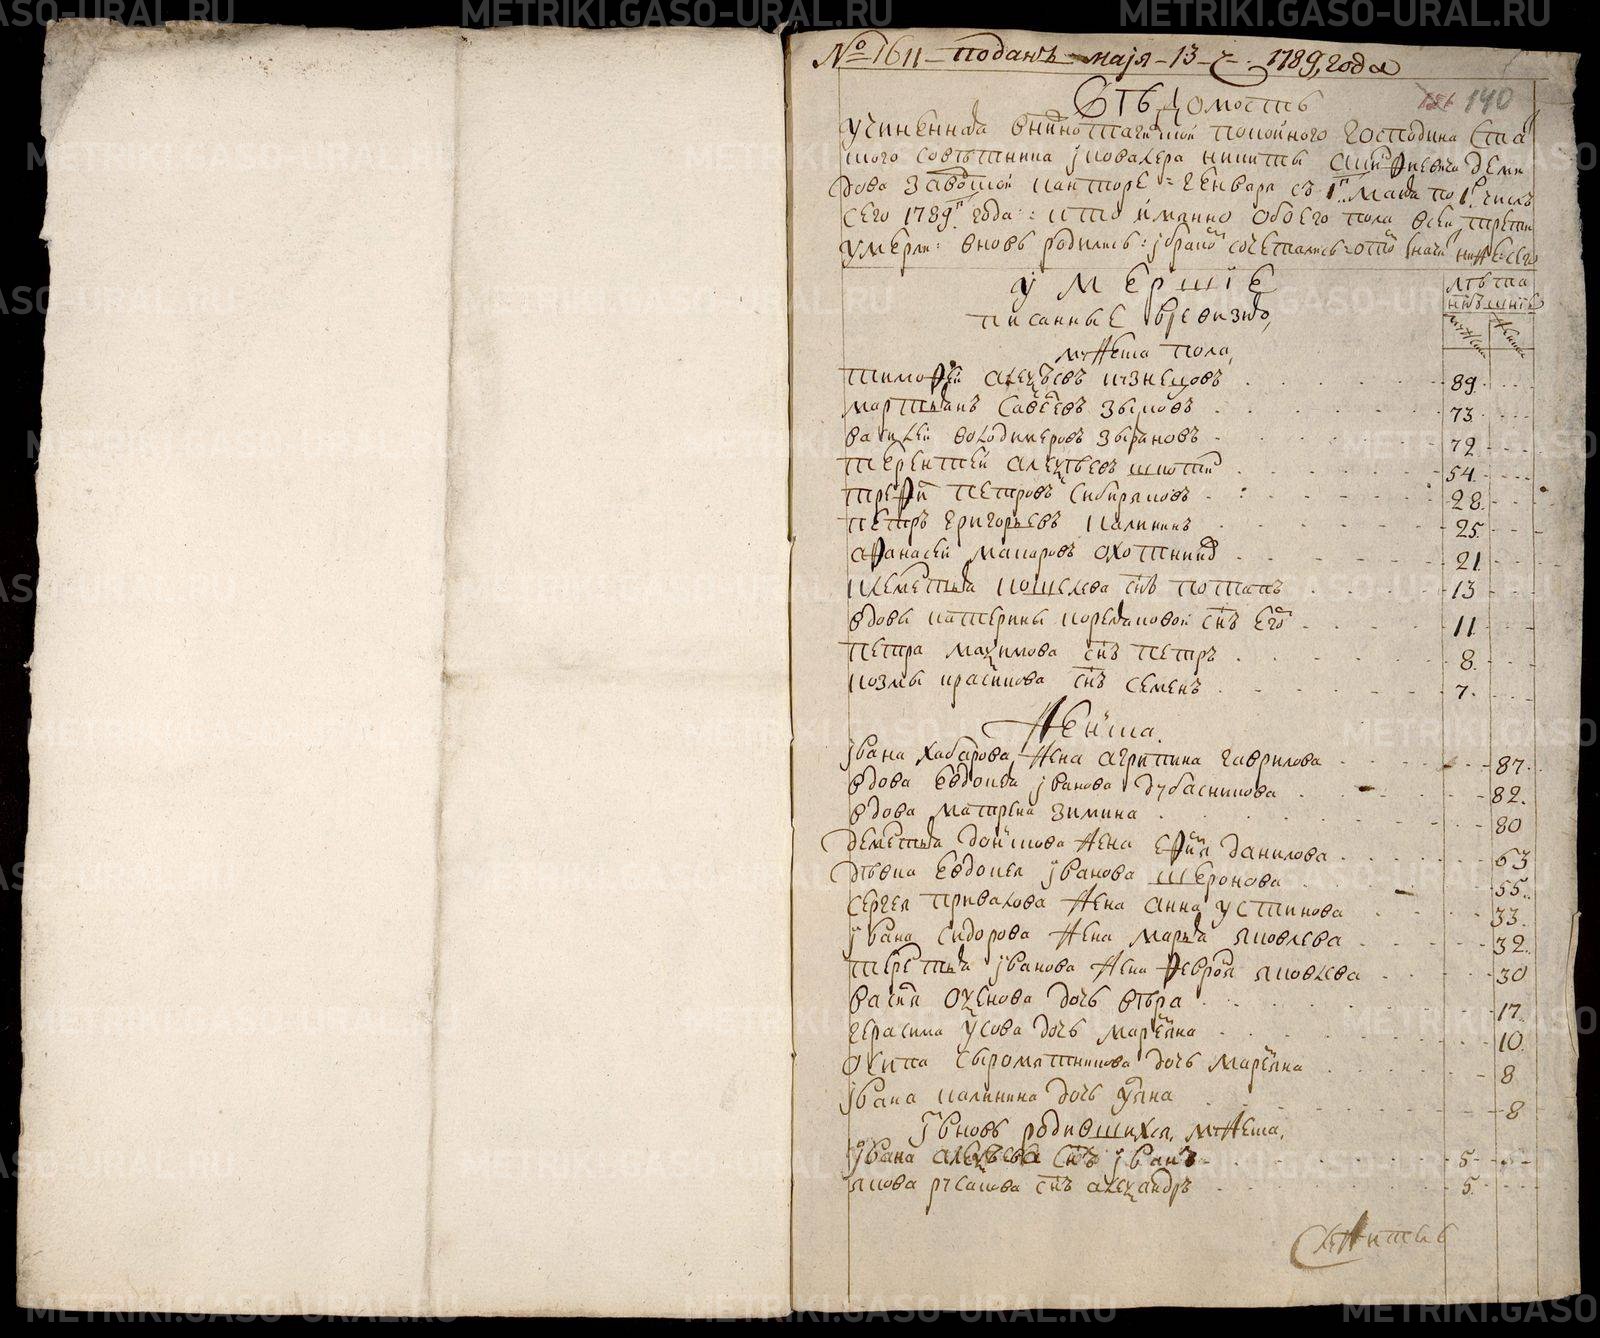 № 1611 поданъ маія 13 ч. 1789 года
Вѣдомость
156 140
учиненная в нижнотагилской покойного господина ста
цкого совѣтника і ковалера никиты акинфиевича деми
дова заводской канторе генваря съ 1г. маия по 1е число
сего 1789г года: кто имянно обоего пола всей трети
умерли: вновь родились: і браком сочетались: о том значит ниже сего
умершіе
писанные в ревизию,
мужеска пола,
лѣта
мужска женска
тимофей алексѣевъ кузнецовъ 89
мартьянъ савеевъ зыковъ 73
василей володимеровъ зыряновъ 72
терентей алексѣевъ 54
трефил петровъ сибиряковъ 28
петръ григорьевъ калининъ 25
афанасей макаровъ охотников 21
клементья кошелева снъ потапъ 13
вдовы катерины корелаковой снъ егор 11
петра максимова снъ петръ 8
козмы красикова снъ семенъ 7
женска.
івана хабарова жена агрипина гаврилова 87
вдова евдокия іванова дубасникова 82
вдова матрена зимина 80
дементья жена ефимия данилова 63
дѣвка евдокея іванова шеронова 55
сергея привалова жена анна устинова 33
івана сидорова жена марья яковлева 32
терентья іванова жена феврония яковлева 30
василя оксенова дочь вѣра 17
герасима усова дочь маремяна 10
осипа сыромятникова дочь маремяна 8
івана калинина дочь уляна 8
вновь родившихся, мужеска,
івана алексѣева снъ іванъ 5
якова русакова снъ александръ 5
METRIKI.GASO-URAL.RU